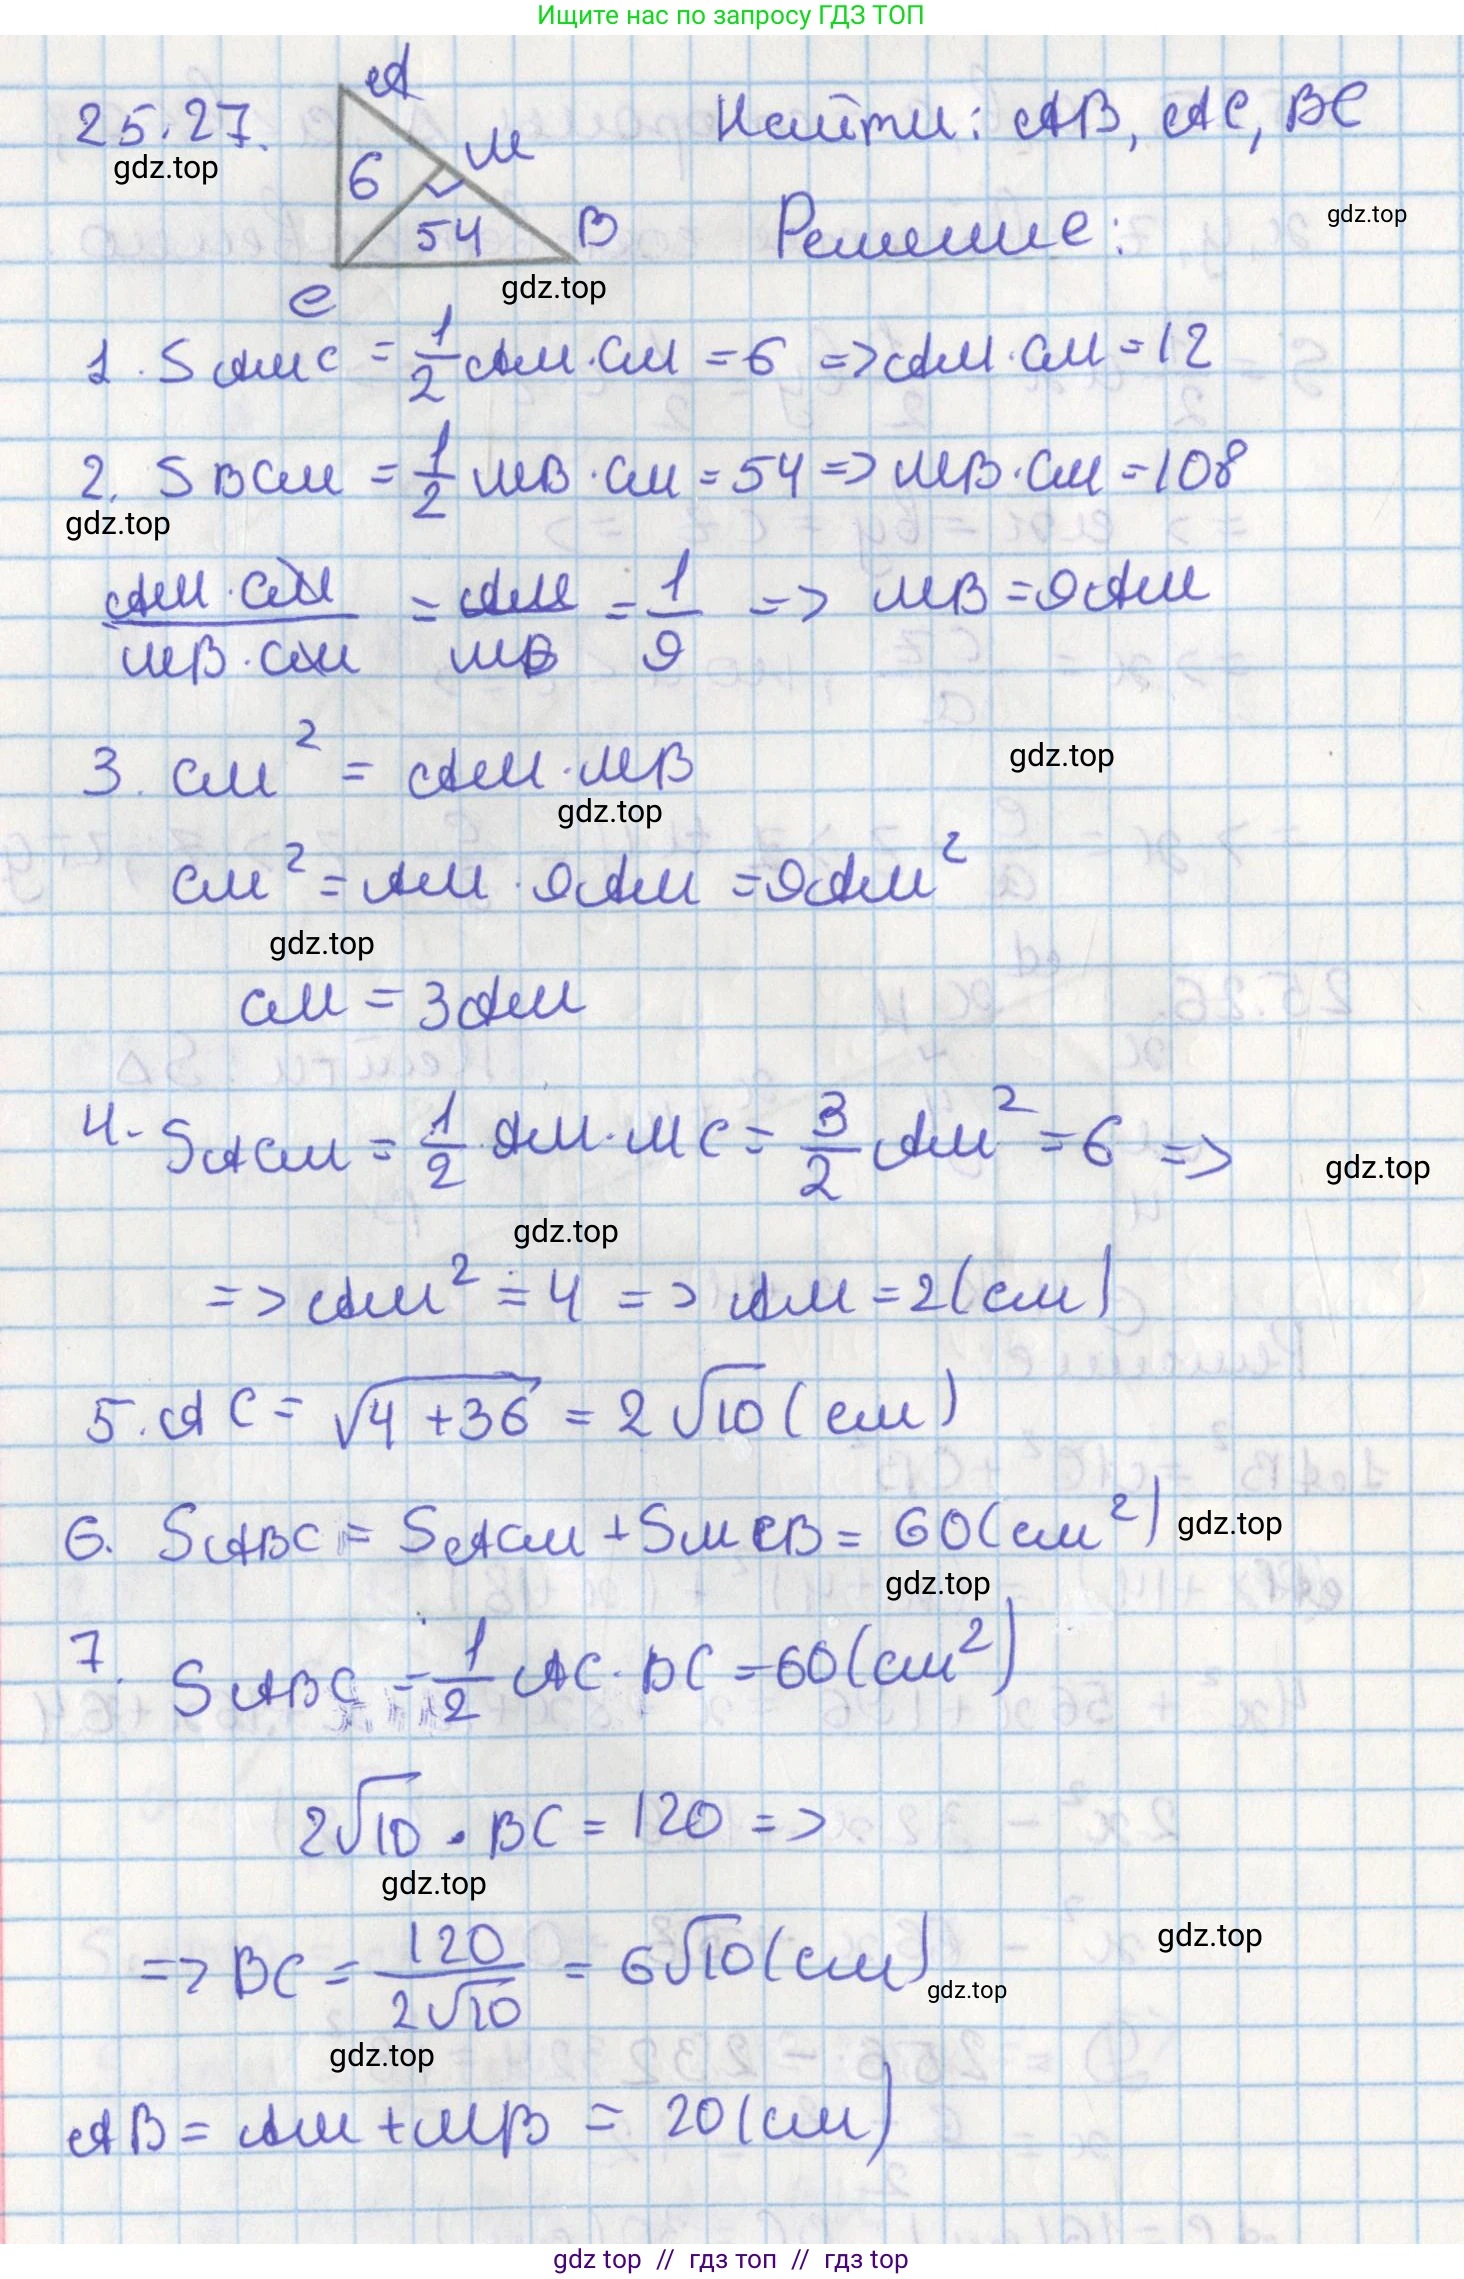 Ищите нас по запросу ГДЗ ТОП
25.27.
gdz.top
A
M
6
54
B
C
gdz.top
Найти: AB, AC, BC
Решение:
gdz.top
1. S AMC = 1/2 AM · CM = 6 => AM · CM = 12
2. S BCM = 1/2 MB · CM = 54 => MB · CM = 108
gdz.top
AM · CM / MB · CM = AM / MB = 1/9 => MB = 9AM
3. CM² = AM · MB
gdz.top
gdz.top
CM² = AM · 9AM = 9AM²
gdz.top
CM = 3AM
4. S ACM = 1/2 · AM · MC = 3/2 AM² = 6 =>
gdz.top
gdz.top
=> AM² = 4 => AM = 2 (см)
5. AC = √(4 + 36) = 2√10 (см)
6. S ABC = S ACM + S MCB = 60 (см²)
gdz.top
gdz.top
7. S ABC = 1/2 AC · BC = 60 (см²)
2√10 · BC = 120 =>
gdz.top
=> BC = 120 / 2√10 = 6√10 (см)
gdz.top
gdz.top
gdz.top
AB = AM + MB = 20 (см)
gdz top // гдз топ // гдз top